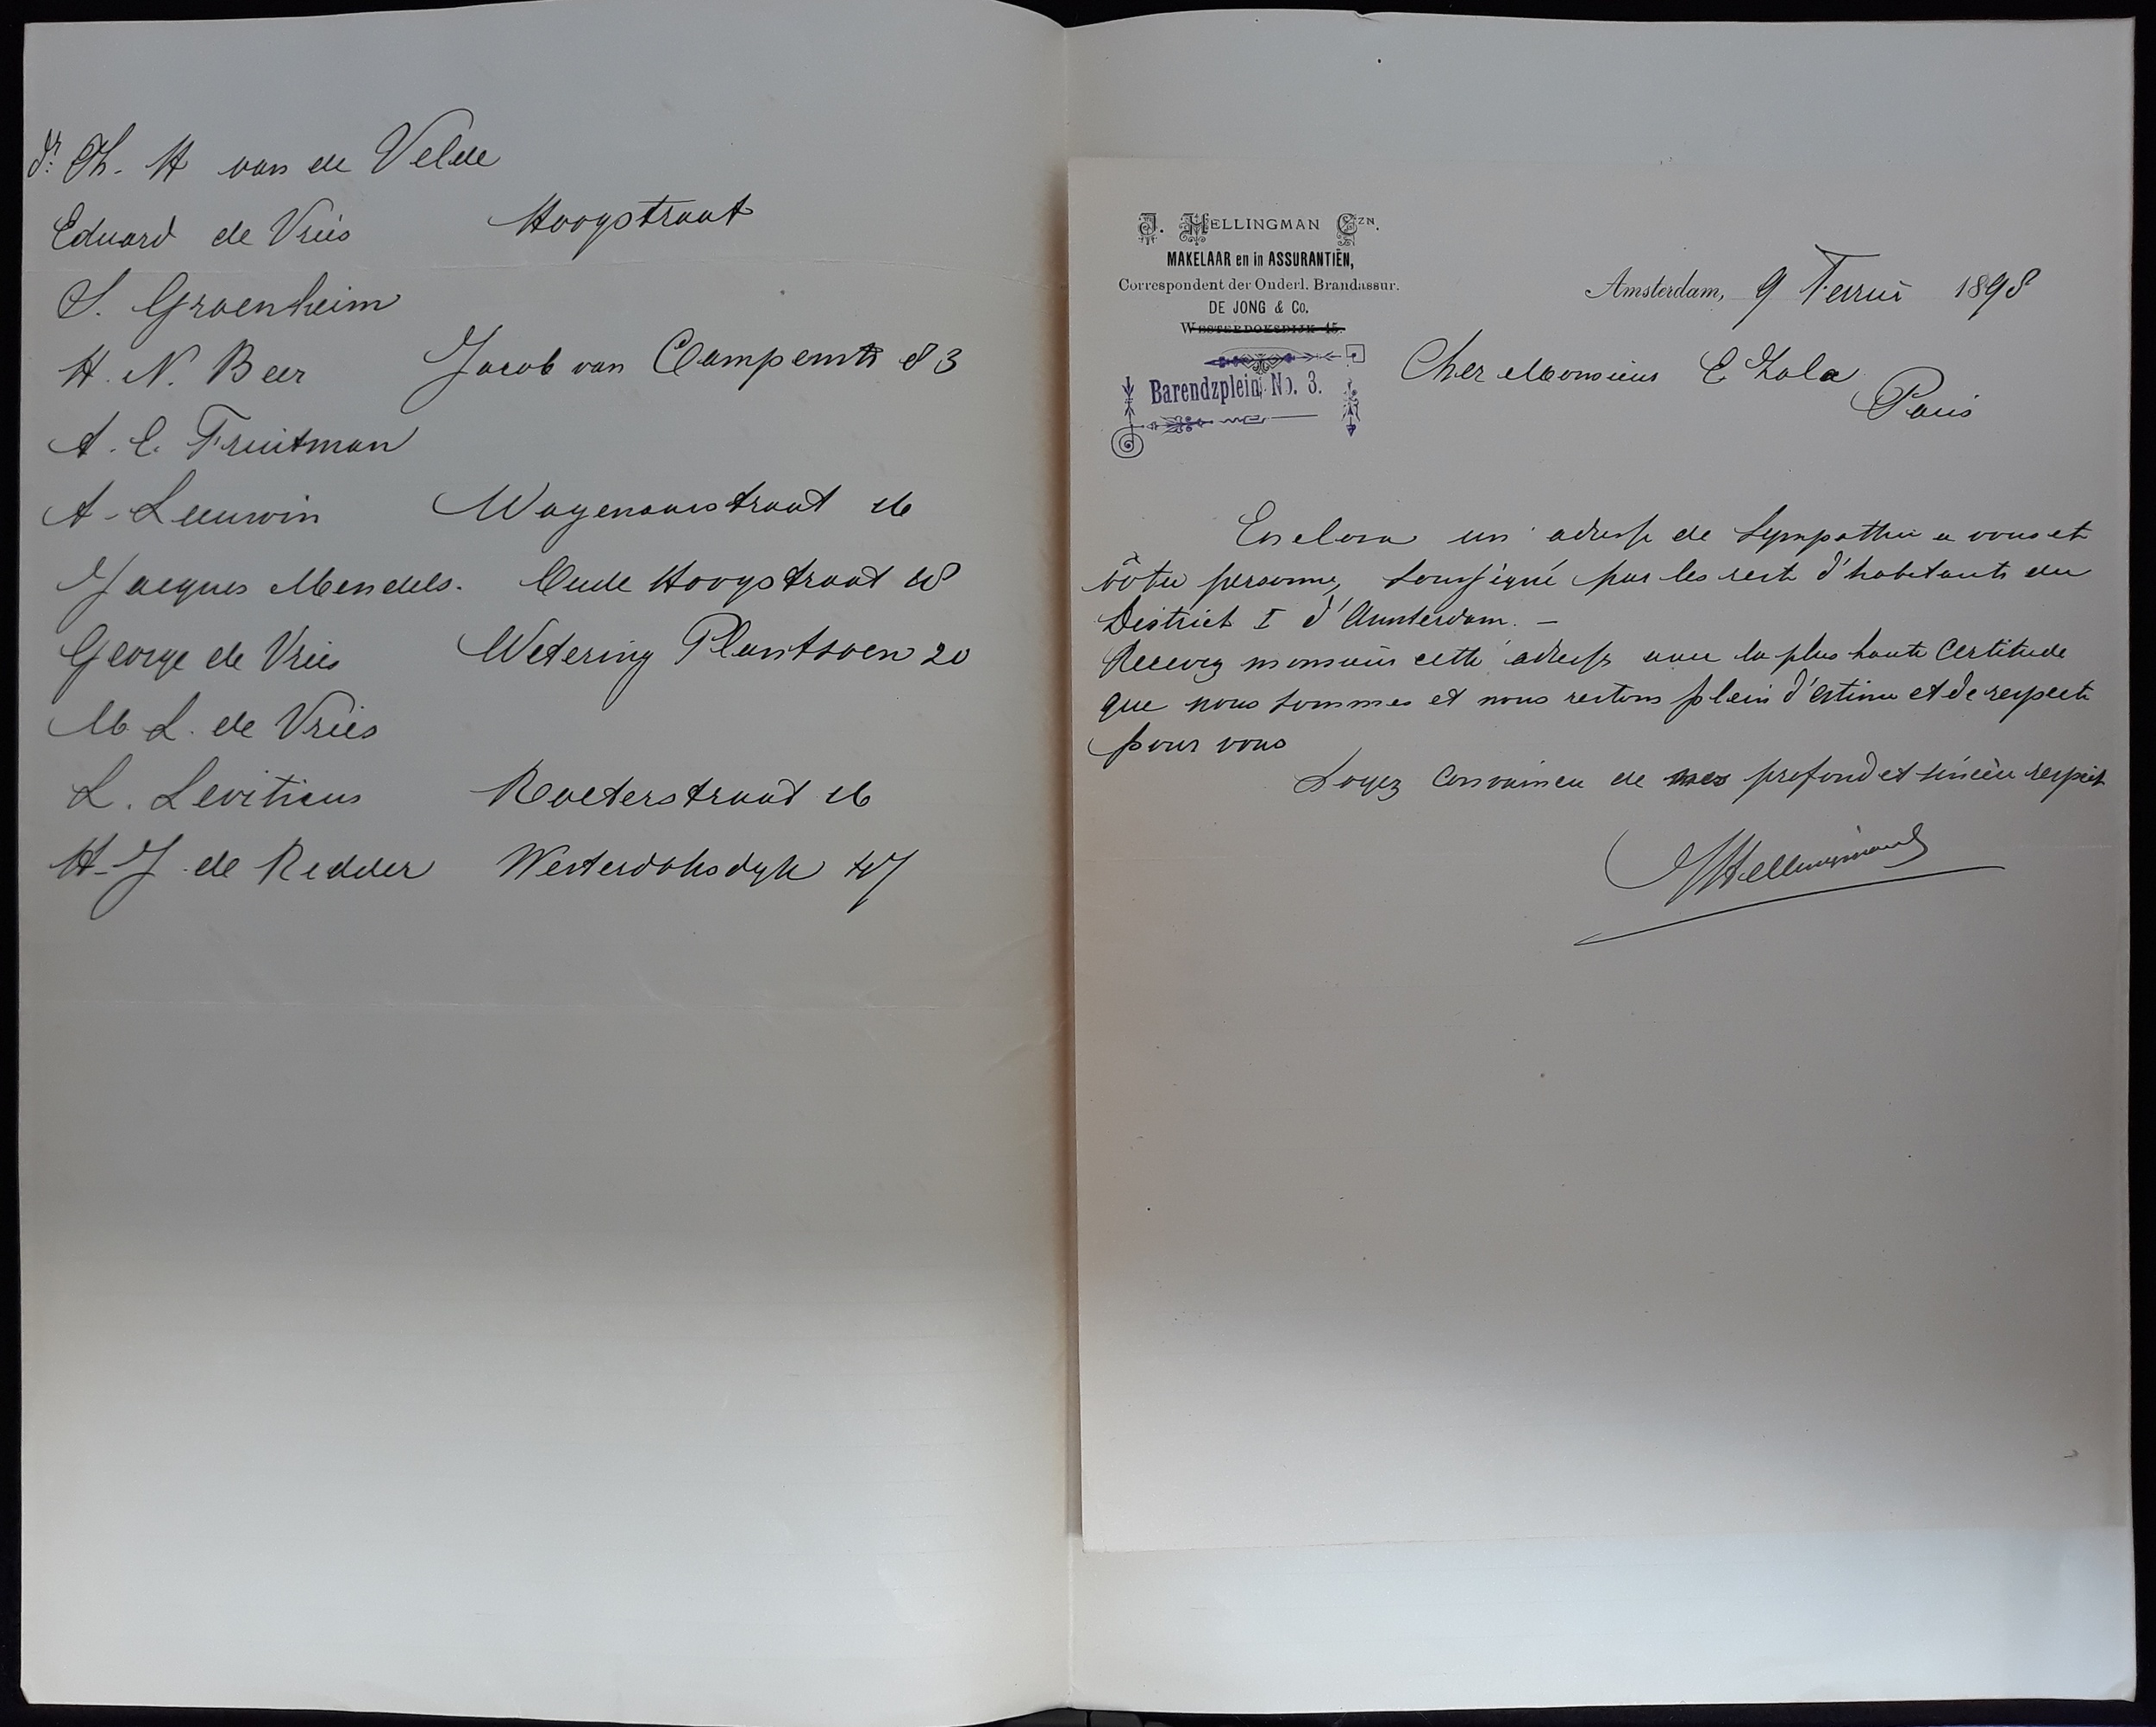 dr. Th. H van de Velde
Eduard de Vries Hoogstraat
S. Groenheim
H. N. Beer Jacob van Campenstr 83
A. C. Fruitman
A. Leeuwin Wagenaarstraat 16
Jacques Mendels. Oude Hoogstraat 18
George de Vries Wetering Plantsoen 20
M. L. de Vries
L. Leviticus Roeterstraat 16
H. J. de Ridder Westerdoksdyk 47
J. HELLINGMAN GZN.
MAKELAAR en in ASSURANTIËN,
Correspondent der Onderl. Brandassur.
DE JONG & Co.
WESTERDOKSDIJK 45.
Barendzplein, No. 3.
Amsterdam, 9 1898
Cher Monsieur E Zola
Paris
un adresse de Sympathie a vous et
vôtre personne, soussigné par les rest d'habitants du
District I d'Amsterdam. —
Recevez monsieur cette adresse avec la plus haute Certitude
que nous sommes et nous restons plein d'estime et de respect
pour vous
Soyez Convaincu de mes profond et sincère respect
JHellingman